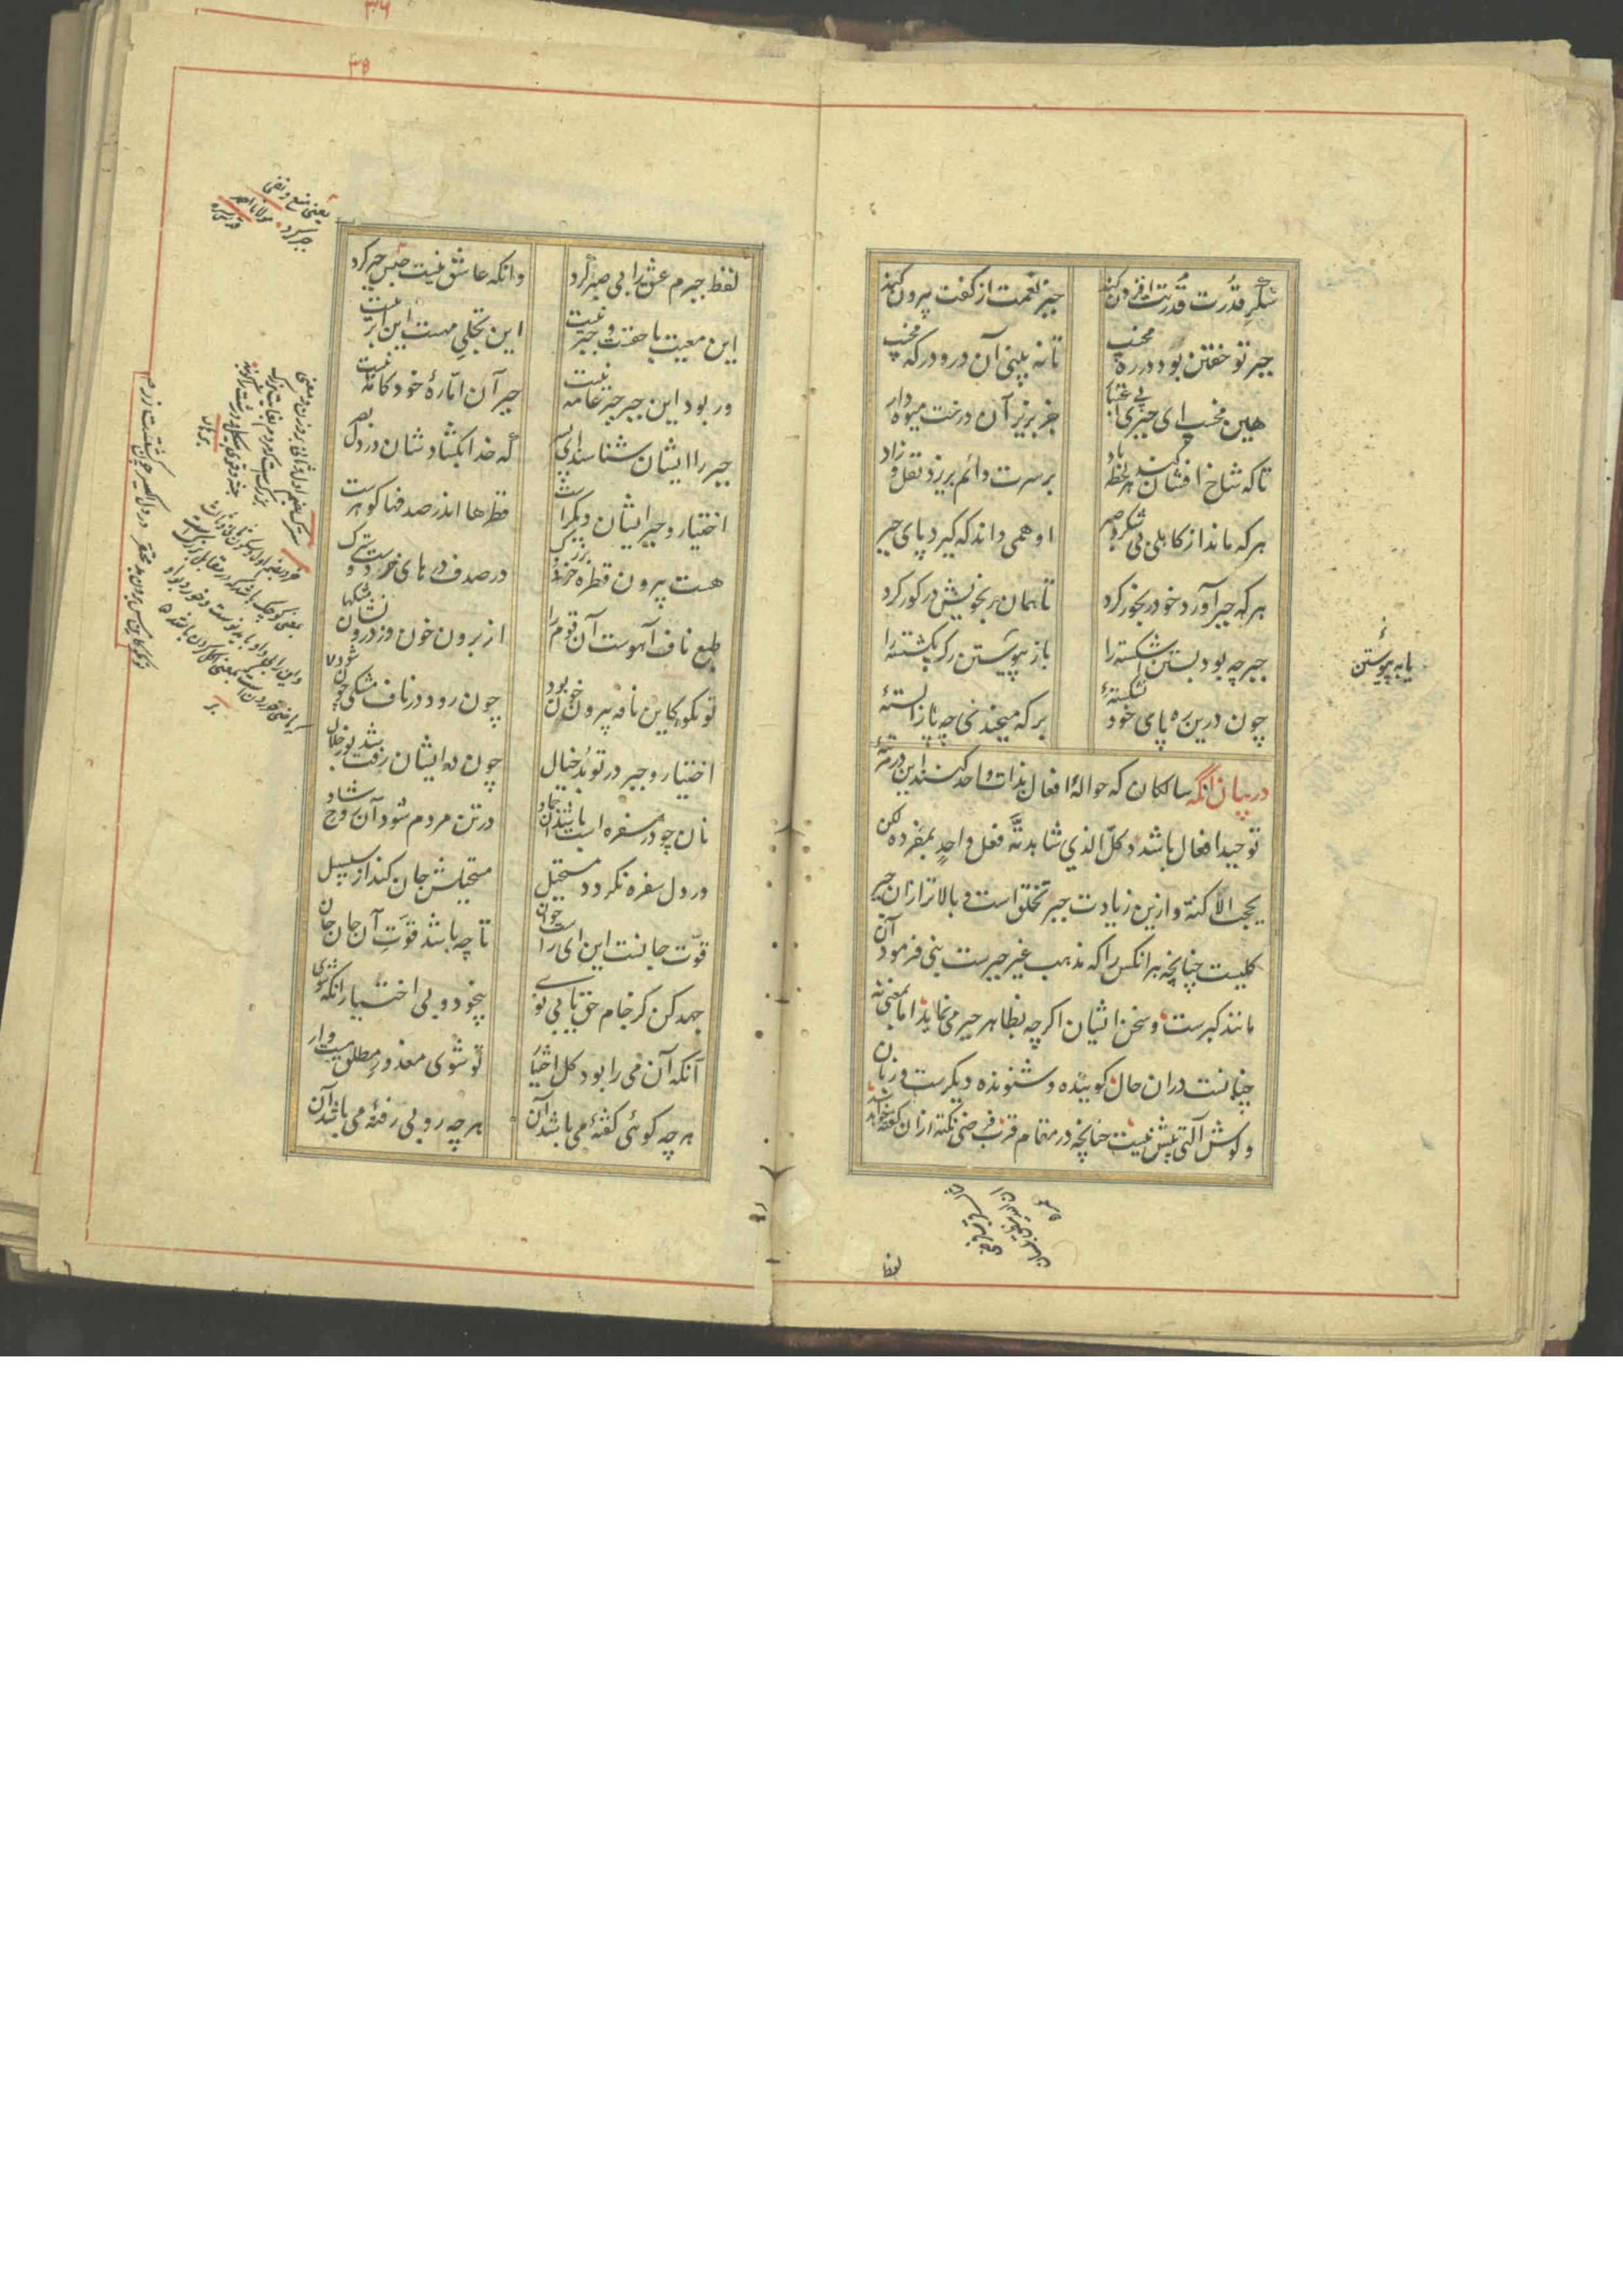 شکر قدرت قدرتت افزون کند
جبر نعمت از کفت بیرون کند
جبر تو خفتن بود در ره مخسپ
تا نه بینی آن در و درگه مخسپ
هین مخسپ ای جبری بی اعتبار
جز بزیر آن درخت میوه دار
تا که شاخ افشان کند هر لحظه باد
بر سرت دائم بریزد نقل و زاد
هر که ماند از کاهلی بی شکر و صبر
او همی داند که گیرد پای جبر
هر که جبر آورد خود رنجور کرد
تا همان رنجوریش در گور کرد
جبر چه بود بستن اشکسته را
یا به پیوستن رگ بگسسته را
چون درین ره پای خود نشکستهٔ
بر که میخندی چه پا را بستهٔ
در بیان آنکه سالکان که حوالهٔ افعال بذات واحد کنند این مرتبهٔ
توحید افعال باشد و کل الذی شاهدته فعل واحد بمفرده لکن
بحجب الاکنة و ازین زیادت جبر تخلق است و بالاتر ازان جبر
کلیست چنانچه هر آنکس را که مذهب غیر جبرست نبی فرمود آن
مانند گبرست و سخن ایشان اگرچه بظاهر جبر می نماید اما بمعنی نه
چنانست دران حال گوینده و شنونده دیگرست و زبان
و گوش آلتی بیش نیست چنانچه در مقام قرب فرضی نکته ازان گفته خواهد شد
لفظ
یا به پیوستن
۳۵
لفظ جبرم عشق را بی صبر کرد
وانکه عاشق نیست حبس جبر کرد
این معیت با حقست و جبر نیست
این تجلی مهست این ابر نیست
ور بود این جبر جبر عامه نیست
جبر آن امّارهٔ خودکامه نیست
جبر را ایشان شناسند ای پسر
که خدا بگشاد شان در دل بصر
اختیار و جبر ایشان دیگرست
قطرها اندر صدفها گوهرست
هست بیرون قطره خرد و بزرگ
در صدف در های خردست و سترگ
طبع ناف آهوست آن قوم را
از برون خون و ز درون شان مشکها
تو مگو کاین نافه بیرون خون بود
چون رود در ناف مشکی چون شود
اختیار و جبر در تو بد خیال
چون در ایشان رفت شد نور جلال
نان چو در سفره است باشد آن جماد
در تن مردم شود آن روح شاد
در دل سفره نگردد مستحیل
مستحیلش جان کند از سلسبیل
قوّت جانست این ای راست خوان
تا چه باشد قوّت آن جان جان
جهد کن کز جام حق یابی نوی
بیخود و بی اختیار آنگه شوی
آنکه آن می را بود کل اختیار
تو شوی معذور مطلق مست وار
هر چه گوئی گفتهٔ می باشد آن
هر چه روبی رفتهٔ می باشد آن
یعنی منع و نفی
جبر کرد